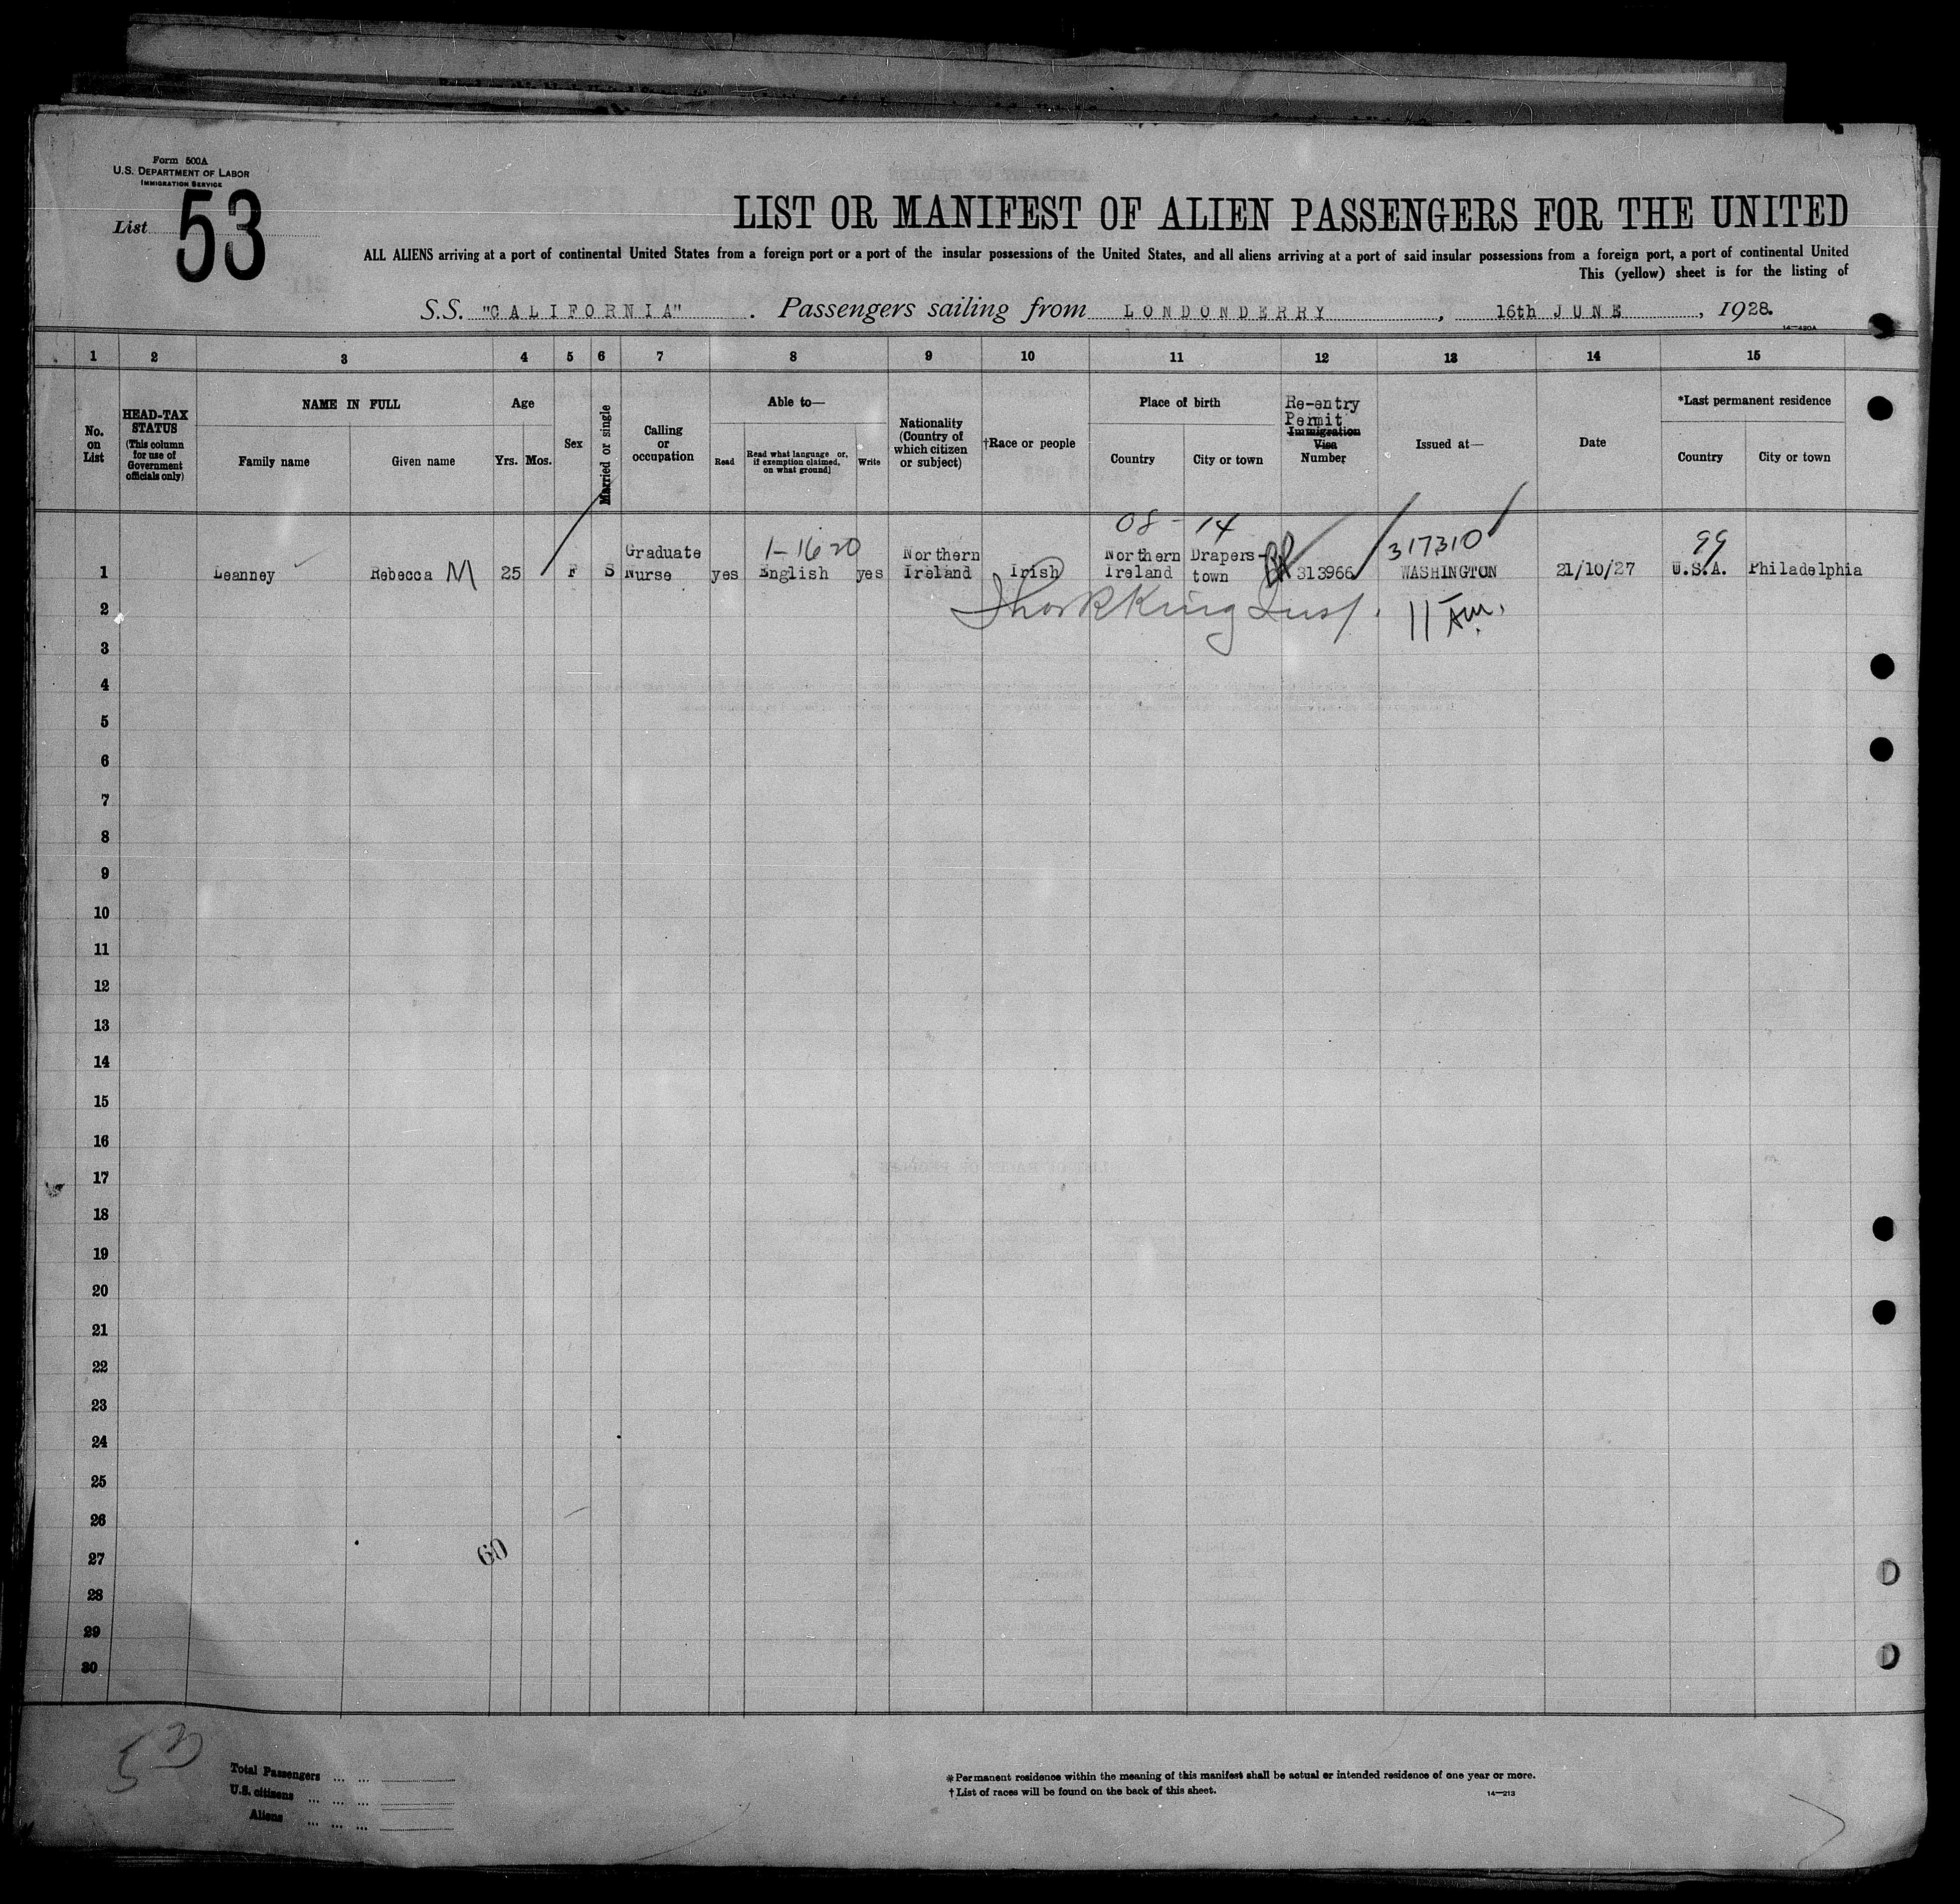 Form 500A
U.S. DEPARTMENT OF LABOR
IMMIGRATION SERVICE
List 53
LIST OR MANIFEST OF ALIEN PASSENGERS FOR THE UNITED
ALL ALIENS arriving at a port of continental United States from a foreign port or a port of the insular possessions of the United States, and all aliens arriving at a port of said insular possessions from a foreign port, a port of continental United
This (yellow) sheet is for the listing of
S.S. "CALIFORNIA". Passengers sailing from LONDONDERRY, 16th JUNE, 1928.
14—430A
1 2 3 4 5 6 7 8 9 10 11 12 13 14 15
No. on List
HEAD-TAX STATUS
(This column for use of Government officials only)
NAME IN FULL
Family name
Given name
Age
Yrs. Mos.
Sex
Married or single
Calling or occupation
Able to—
Read
Read what language or, if exemption claimed, on what ground]
Write
Nationality (Country of which citizen or subject)
†Race or people
Place of birth
Country
City or town
Re-entry
Permit
Immigration
Visa
Number
Issued at—
Date
*Last permanent residence
Country
City or town
08 - 14
1-16 20
317310
99
1 Leanney Rebecca M 25 F S Graduate Nurse yes English yes Northern Ireland Irish Northern Ireland Drapers-town 313966 WASHINGTON 21/10/27 U.S.A. Philadelphia
2
King Insp. 11 AM.
3
4
5
6
7
8
9
10
11
12
13
14
15
16
17
18
19
20
21
22
23
24
25
26
60
27
28
29
30
53
Total Passengers ... ...
U.S. citizens ... ... ...
Aliens ... ... ...
*Permanent residence within the meaning of this manifest shall be actual or intended residence of one year or more.
†List of races will be found on the back of this sheet.
14—213